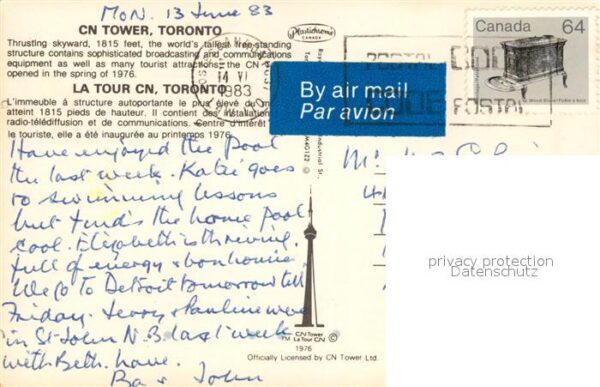 MON. 13 June 83
CN TOWER, TORONTO
Thrusting skyward, 1815 feet, the world's tallest free-standing
structure contains sophisticated broadcasting and communications
equipment as well as many tourist attractions. the CN
opened in the spring of 1976.
LA TOUR CN, TORONTO
L'immeuble à structure autoportante le plus élevé du
atteint 1815 pieds de hauteur. Il contient des installations
radio-télédiffusion et de communications. Centre d'intérêt
le touriste, elle a été inaugurée au printemps 1976.
Have enjoyed the Pool
the last week. Katei goes
to swimming lessons
but finds the home pool
cool. Elizabeth is thriving,
full of energy & bonhomie.
We go to Detroit tomorrow till
Friday. Terry & Pauline were
in St John N.B. last week
with Beth. love.
Ba & John
Plastichrome
CANADA
14 VI
1983
POSTAL CODE
CODE POSTAL
Canada 64
By air mail
Par avion
CN Tower
La Tour CN
TM
1976
Officially Licensed by CN Tower Ltd.
privacy protection
Datenschutz